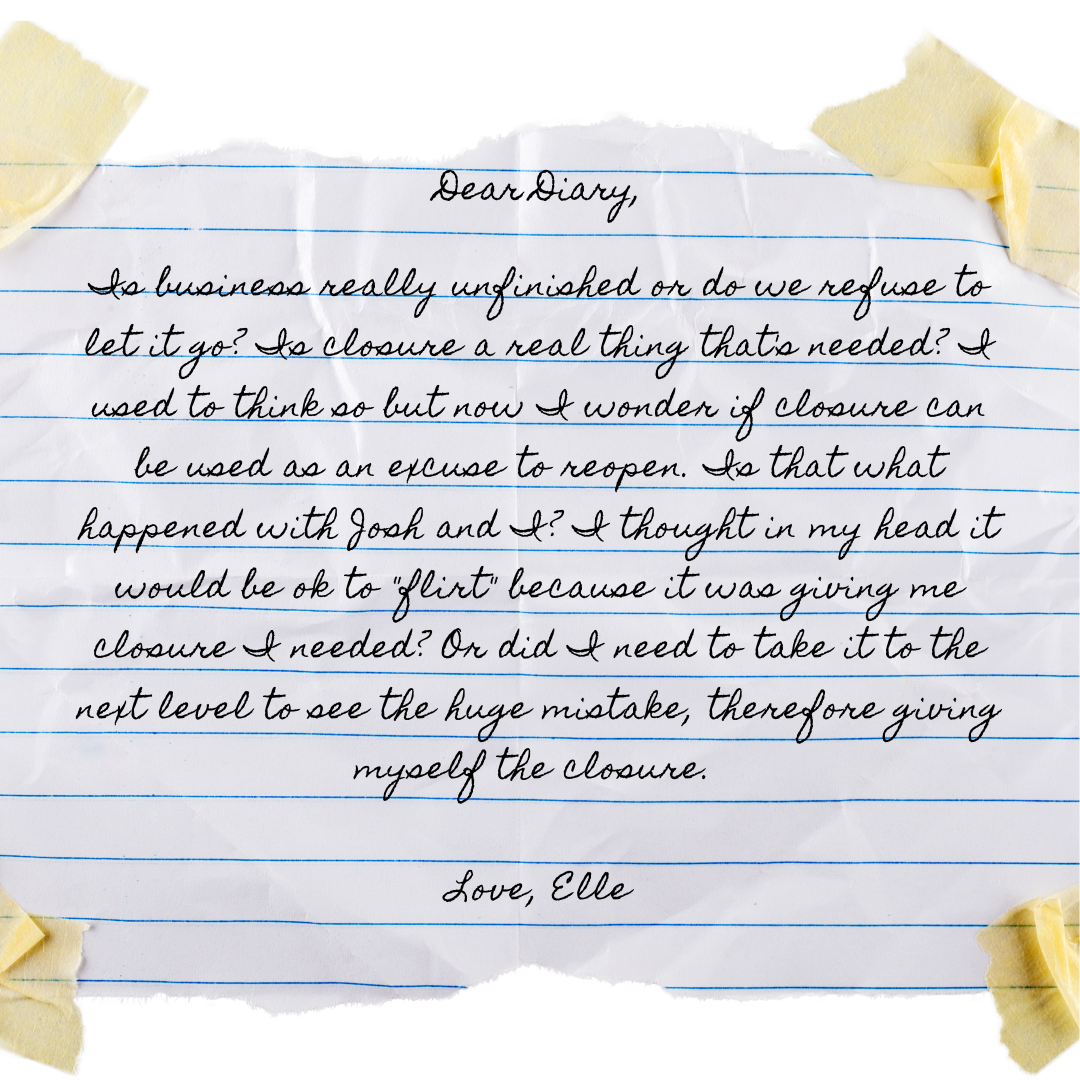 Dear Diary,
Is business really unfinished or do we refuse to
let it go? Is closure a real thing that's needed? I
used to think so but now I wonder if closure can
be used as an excuse to reopen. Is that what
happened with Josh and I? I thought in my head it
would be ok to "flirt" because it was giving me
closure I needed? Or did I need to take it to the
next level to see the huge mistake, therefore giving
myself the closure.
Love, Elle